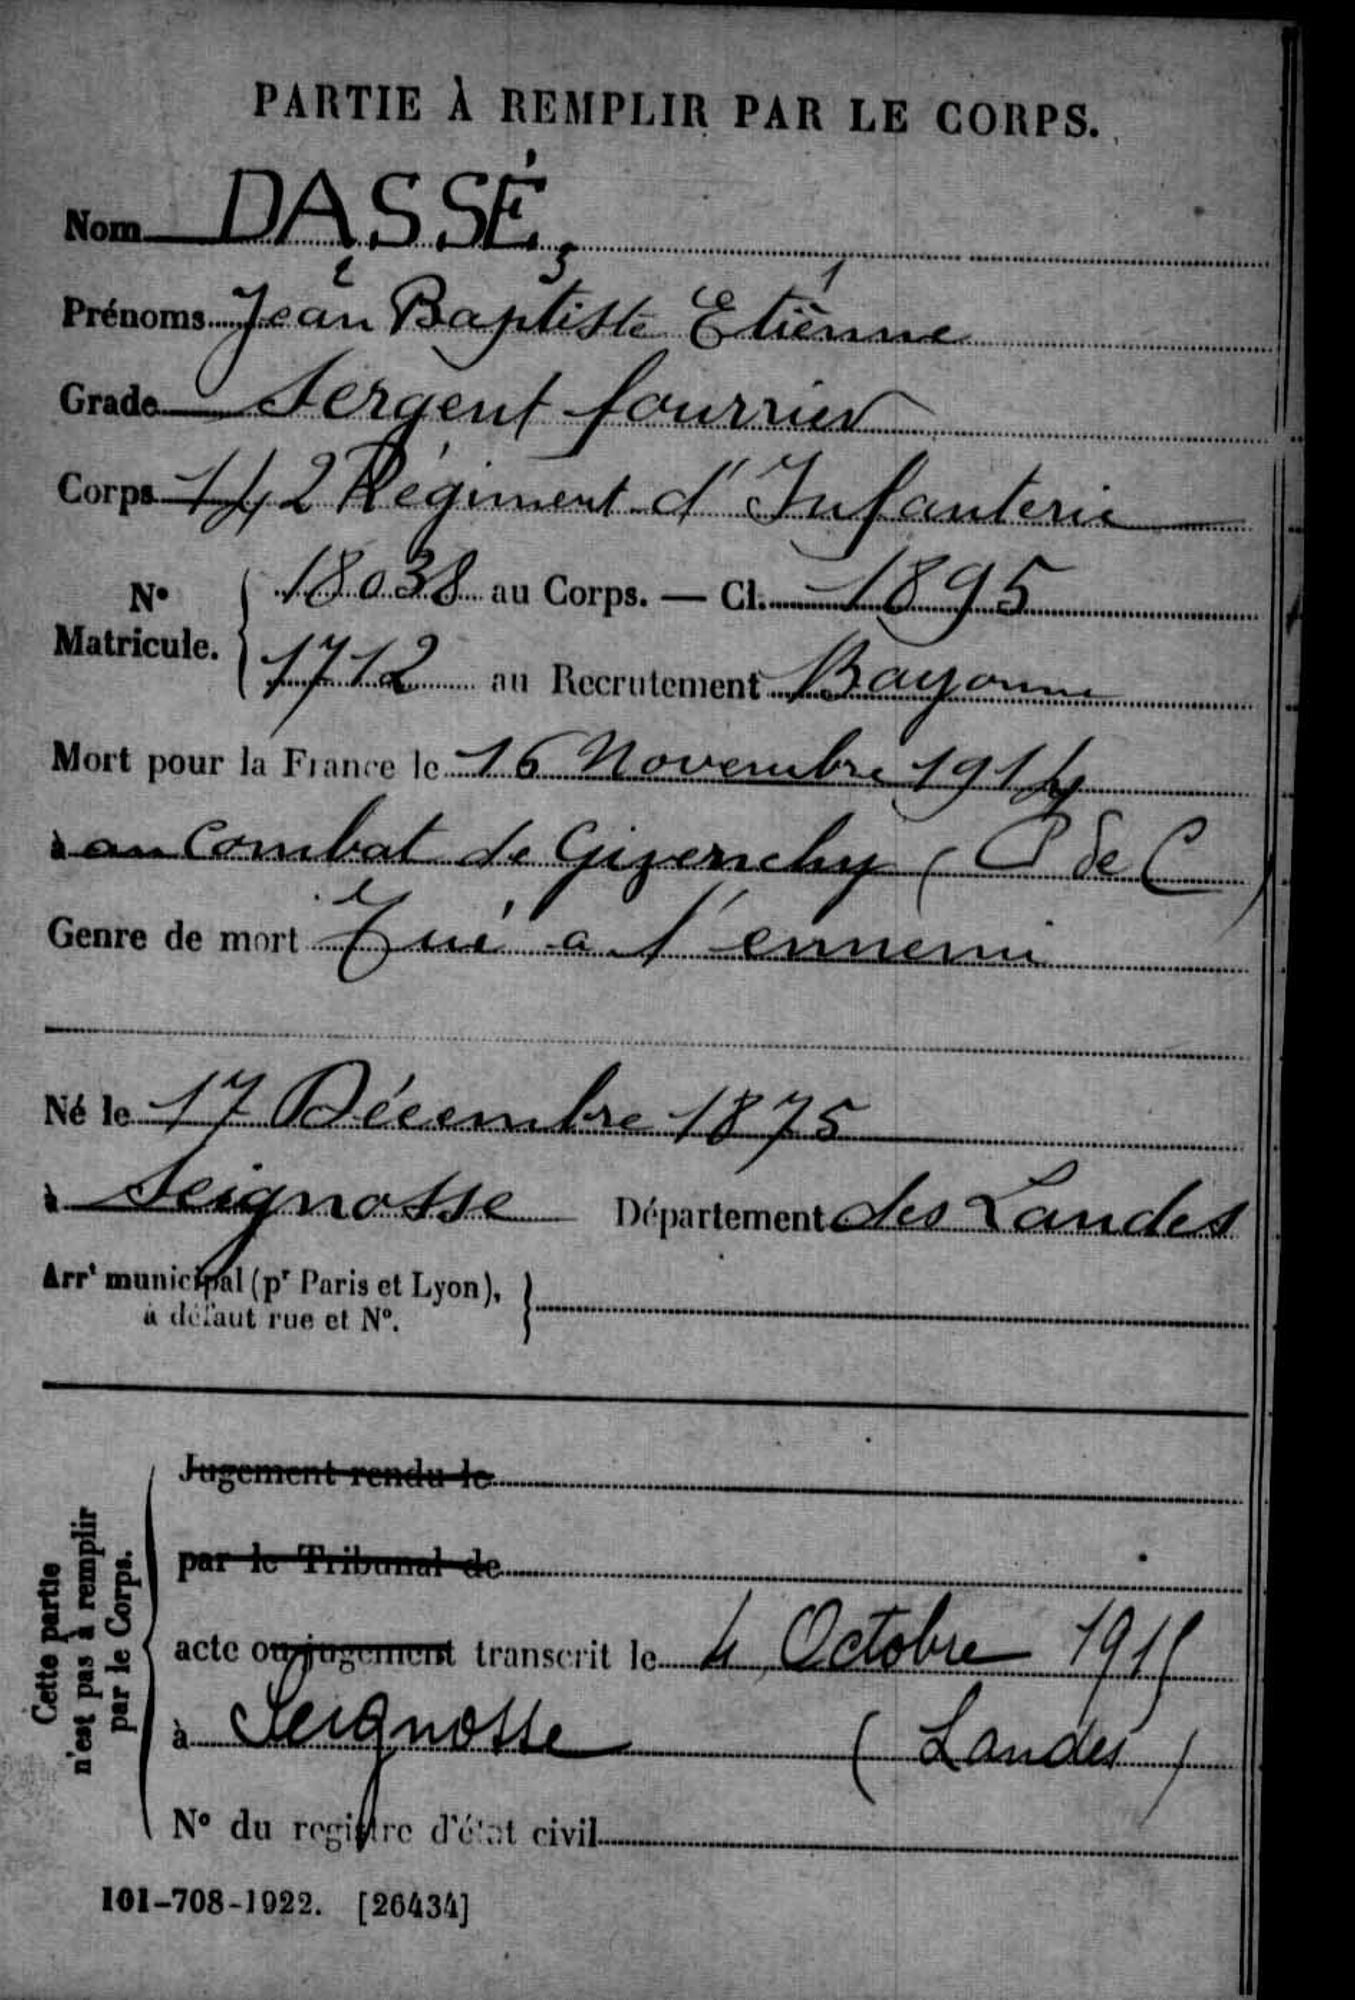 PARTIE À REMPLIR PAR LE CORPS.
Nom DASSÉ,
2 3 1
Prénoms Jean Baptiste Etienne
Grade Sergent fourrier
Corps 142 Régiment d'Infanterie
N° Matricule.
18038 au Corps. — Cl. 1895
1712 au Recrutement Bayonne
Mort pour la France le 16 Novembre 1914
à au Combat de Givenchy (P de C)
Genre de mort Tué a l'ennemi
Né le 17 Décembre 1875
à Seignosse Département des Landes
Arrt municipal (pr Paris et Lyon),
à défaut rue et N°.
Cette partie
n'est pas à remplir
par le Corps.
Jugement rendu le
par le Tribunal de
acte ou jugement transcrit le 4 Octobre 1915
à Seignosse (Landes)
N° du registre d'état civil
101-708-1922. [26434]